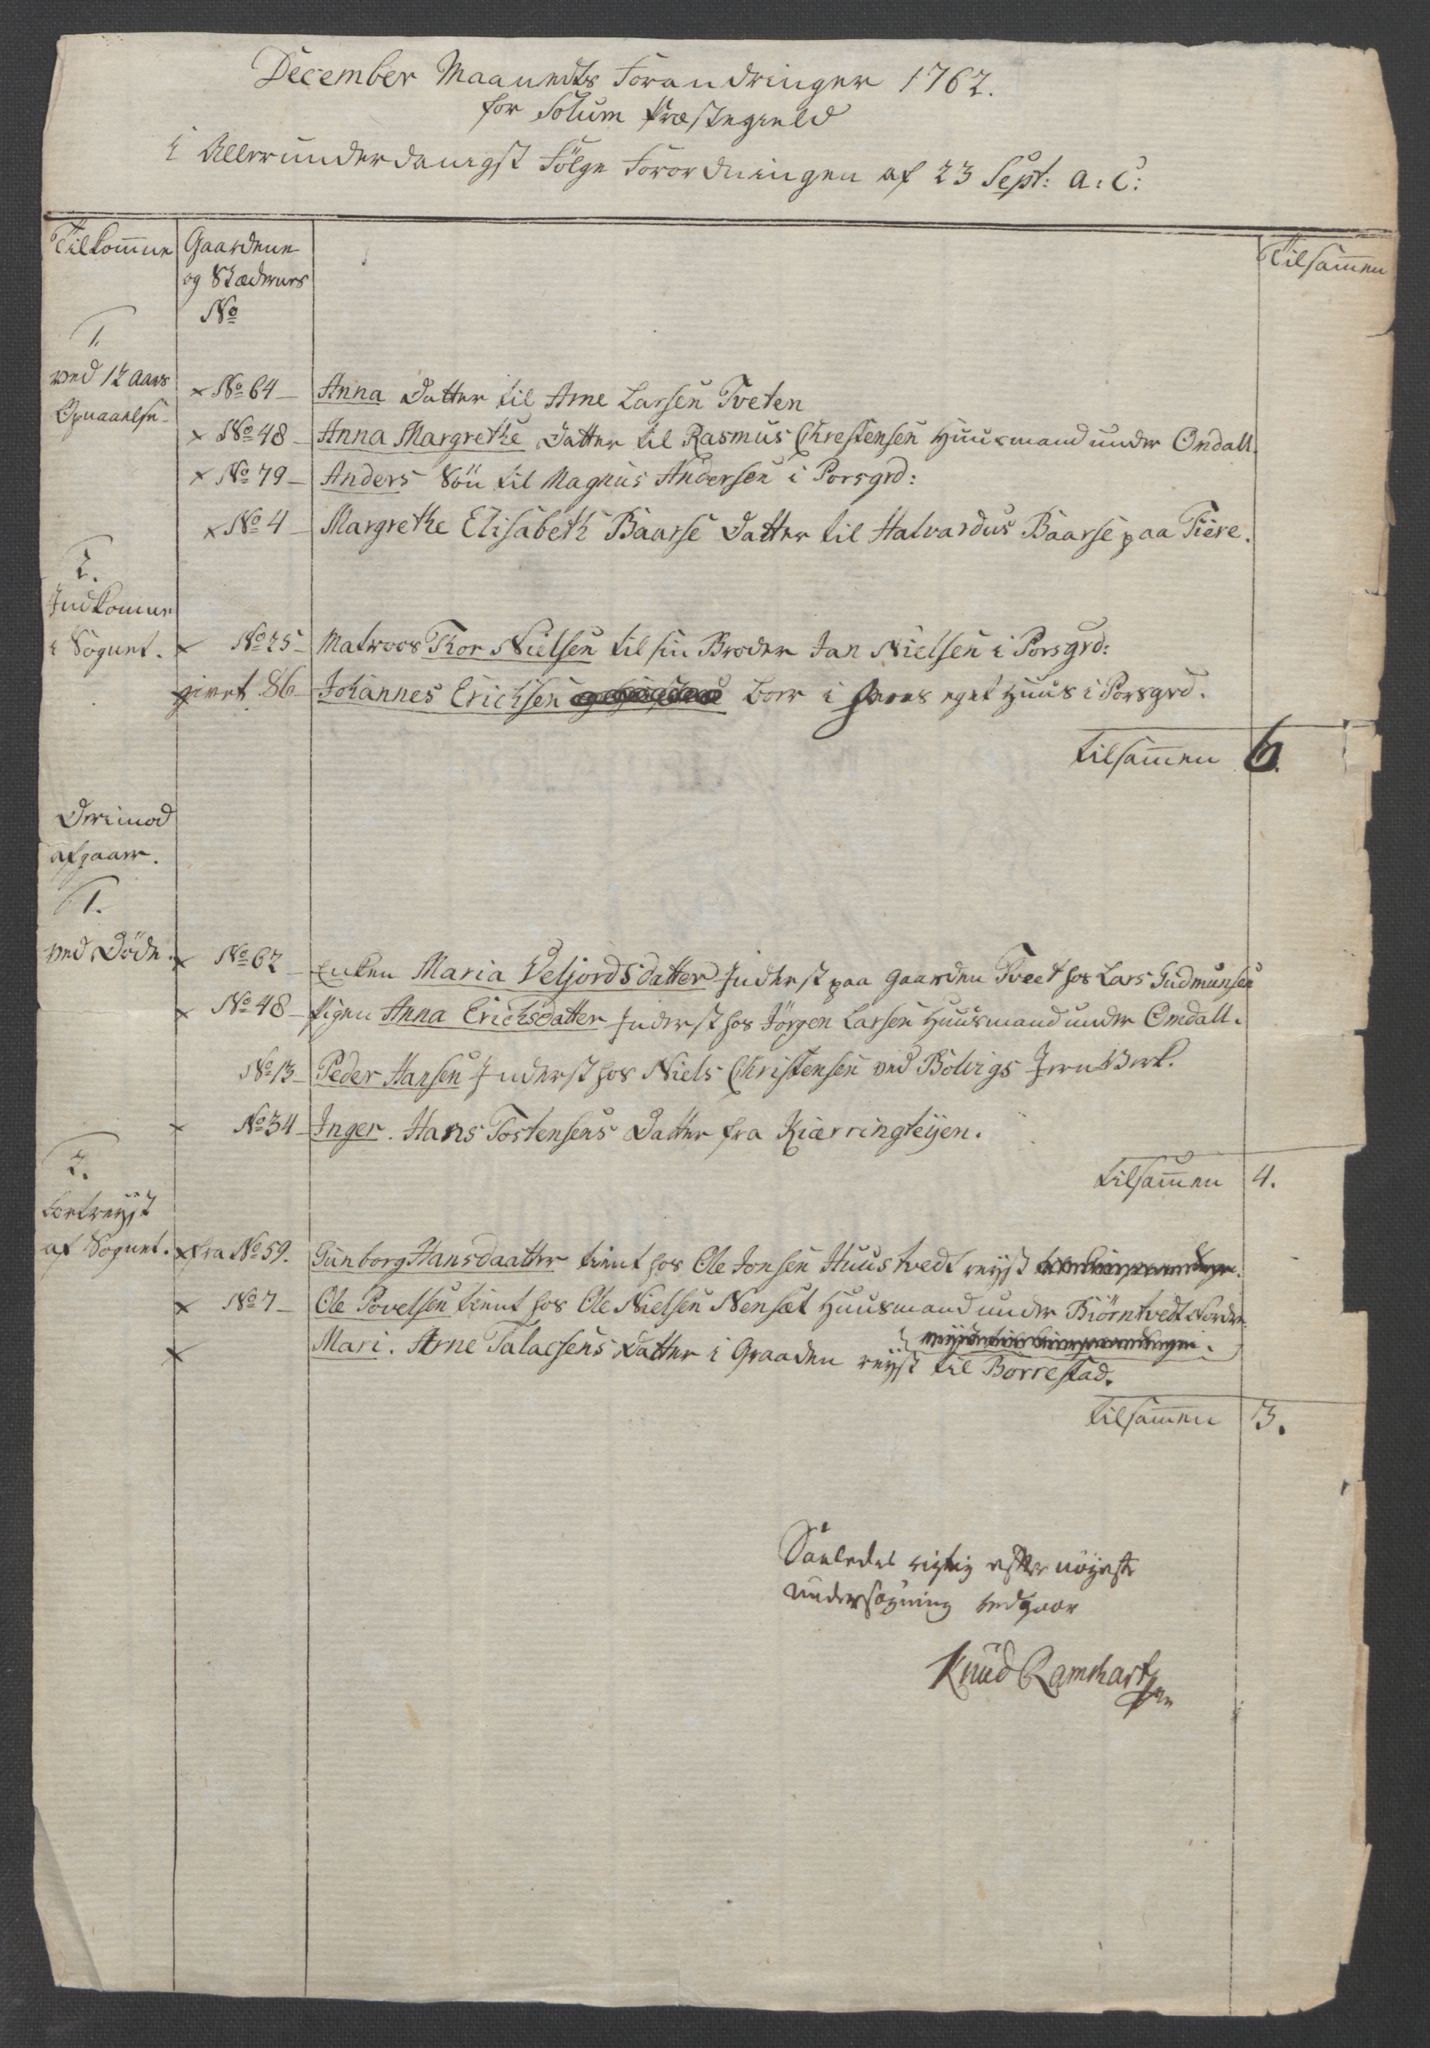 December Maanedts Forandringer 1762.
for Solum Præstegield
i Allerunderdanigst Fölge Forordningen af 23 Sept: a: c:
Tilkom̅ne
Gaardene
og Stædernes
No
Tilsam̅en
1.
ved 12 Aars
Opnaaelse
× No 64 – Anna Datter til Arne Larsen Tveten
× No 48 – Anna Margrethe Datter til Rasmus Christensen Huusmand under Omdall.
× No 79 – Anders Sön til Magnus Andersen i Porsgrd:
× No 4 – Margrethe Elisabeth Baarse Datter til Halvardus Baarse paa Fiere.
2.
Indkomne
i Sognet.
× No 25 – Matroos Thor Nielsen til sin Broder Jan Nielsen i Porsgrd:
86 – Johannes Erichsen boer i hans eget Huus i Porsgrd.
tilsam̅en 6.
Derimod
afgaaer.
1.
ved Döde.
× No 62 – Enken Maria Veljordsdatter Inderst paa Gaarden Tveet hos Lars Gudmunsen
× No 48 – Pigen Anna Erichsdatter Inderst hos Jörgen Larsen Huusmand under Omdall.
No 13 – Peder Hansen Inderst hos Niels Christensen ved Bolvigs Jern Verk.
× No 34 – Inger. Hans Tostensens Datter fra Kiærringteijen.
tilsam̅en 4.
2.
bortreyst
af Sognet.
× fra No 59. Gunborg Hansdaatter tient hos Ole Jonsen Huustvedt reyst
× No 7 – Ole Povelsen tient hos Ole Nielsen Nensæt Huusmand under Biörntvedt Nordre
× Mari. Arne Talaesens Datter i Graaden reyst til Borrestad.
tilsam̅en 3.
Saaledes rigtig efter nöyeste
undersögning tedgaar
Knud Ramshart